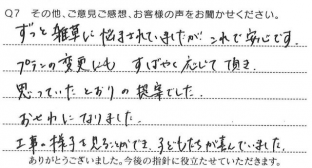 Q7 その他、ご意見ご感想、お客様の声をお聞かせください。
ずっと雑草に悩まされていましたが、これで安心です。
プランの変更にも すばやく応じて頂き、
思っていたとおりの提案でした。
おせわになりました。
工事の様子を見ることができ、子どもたちが喜んでいました。
ありがとうございました。今後の指針に役立たせていただきます。